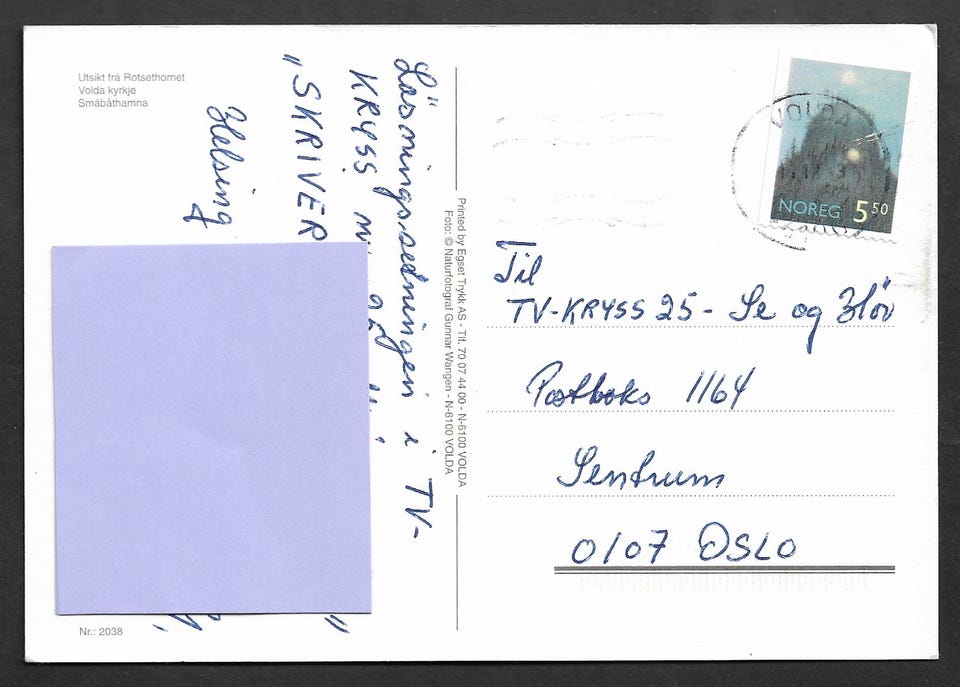 Utsikt frå Rotsethornet
Volda kyrkje
Småbåthamna
Løsningssedningen i TV-
KRYSS
"SKRIVER
"
Helsing
Nr.: 2038
Printed by Egset Trykk AS - Tlf. 70 07 44 00 - N-6100 VOLDA
Foto: © Naturfotograf Gunnar Wangen - N-6100 VOLDA
VOLDA
NOREG 5 50
Til
TV-KRYSS 25 - Se og Hør
Postboks 1164
Sentrum
0107 OSLO